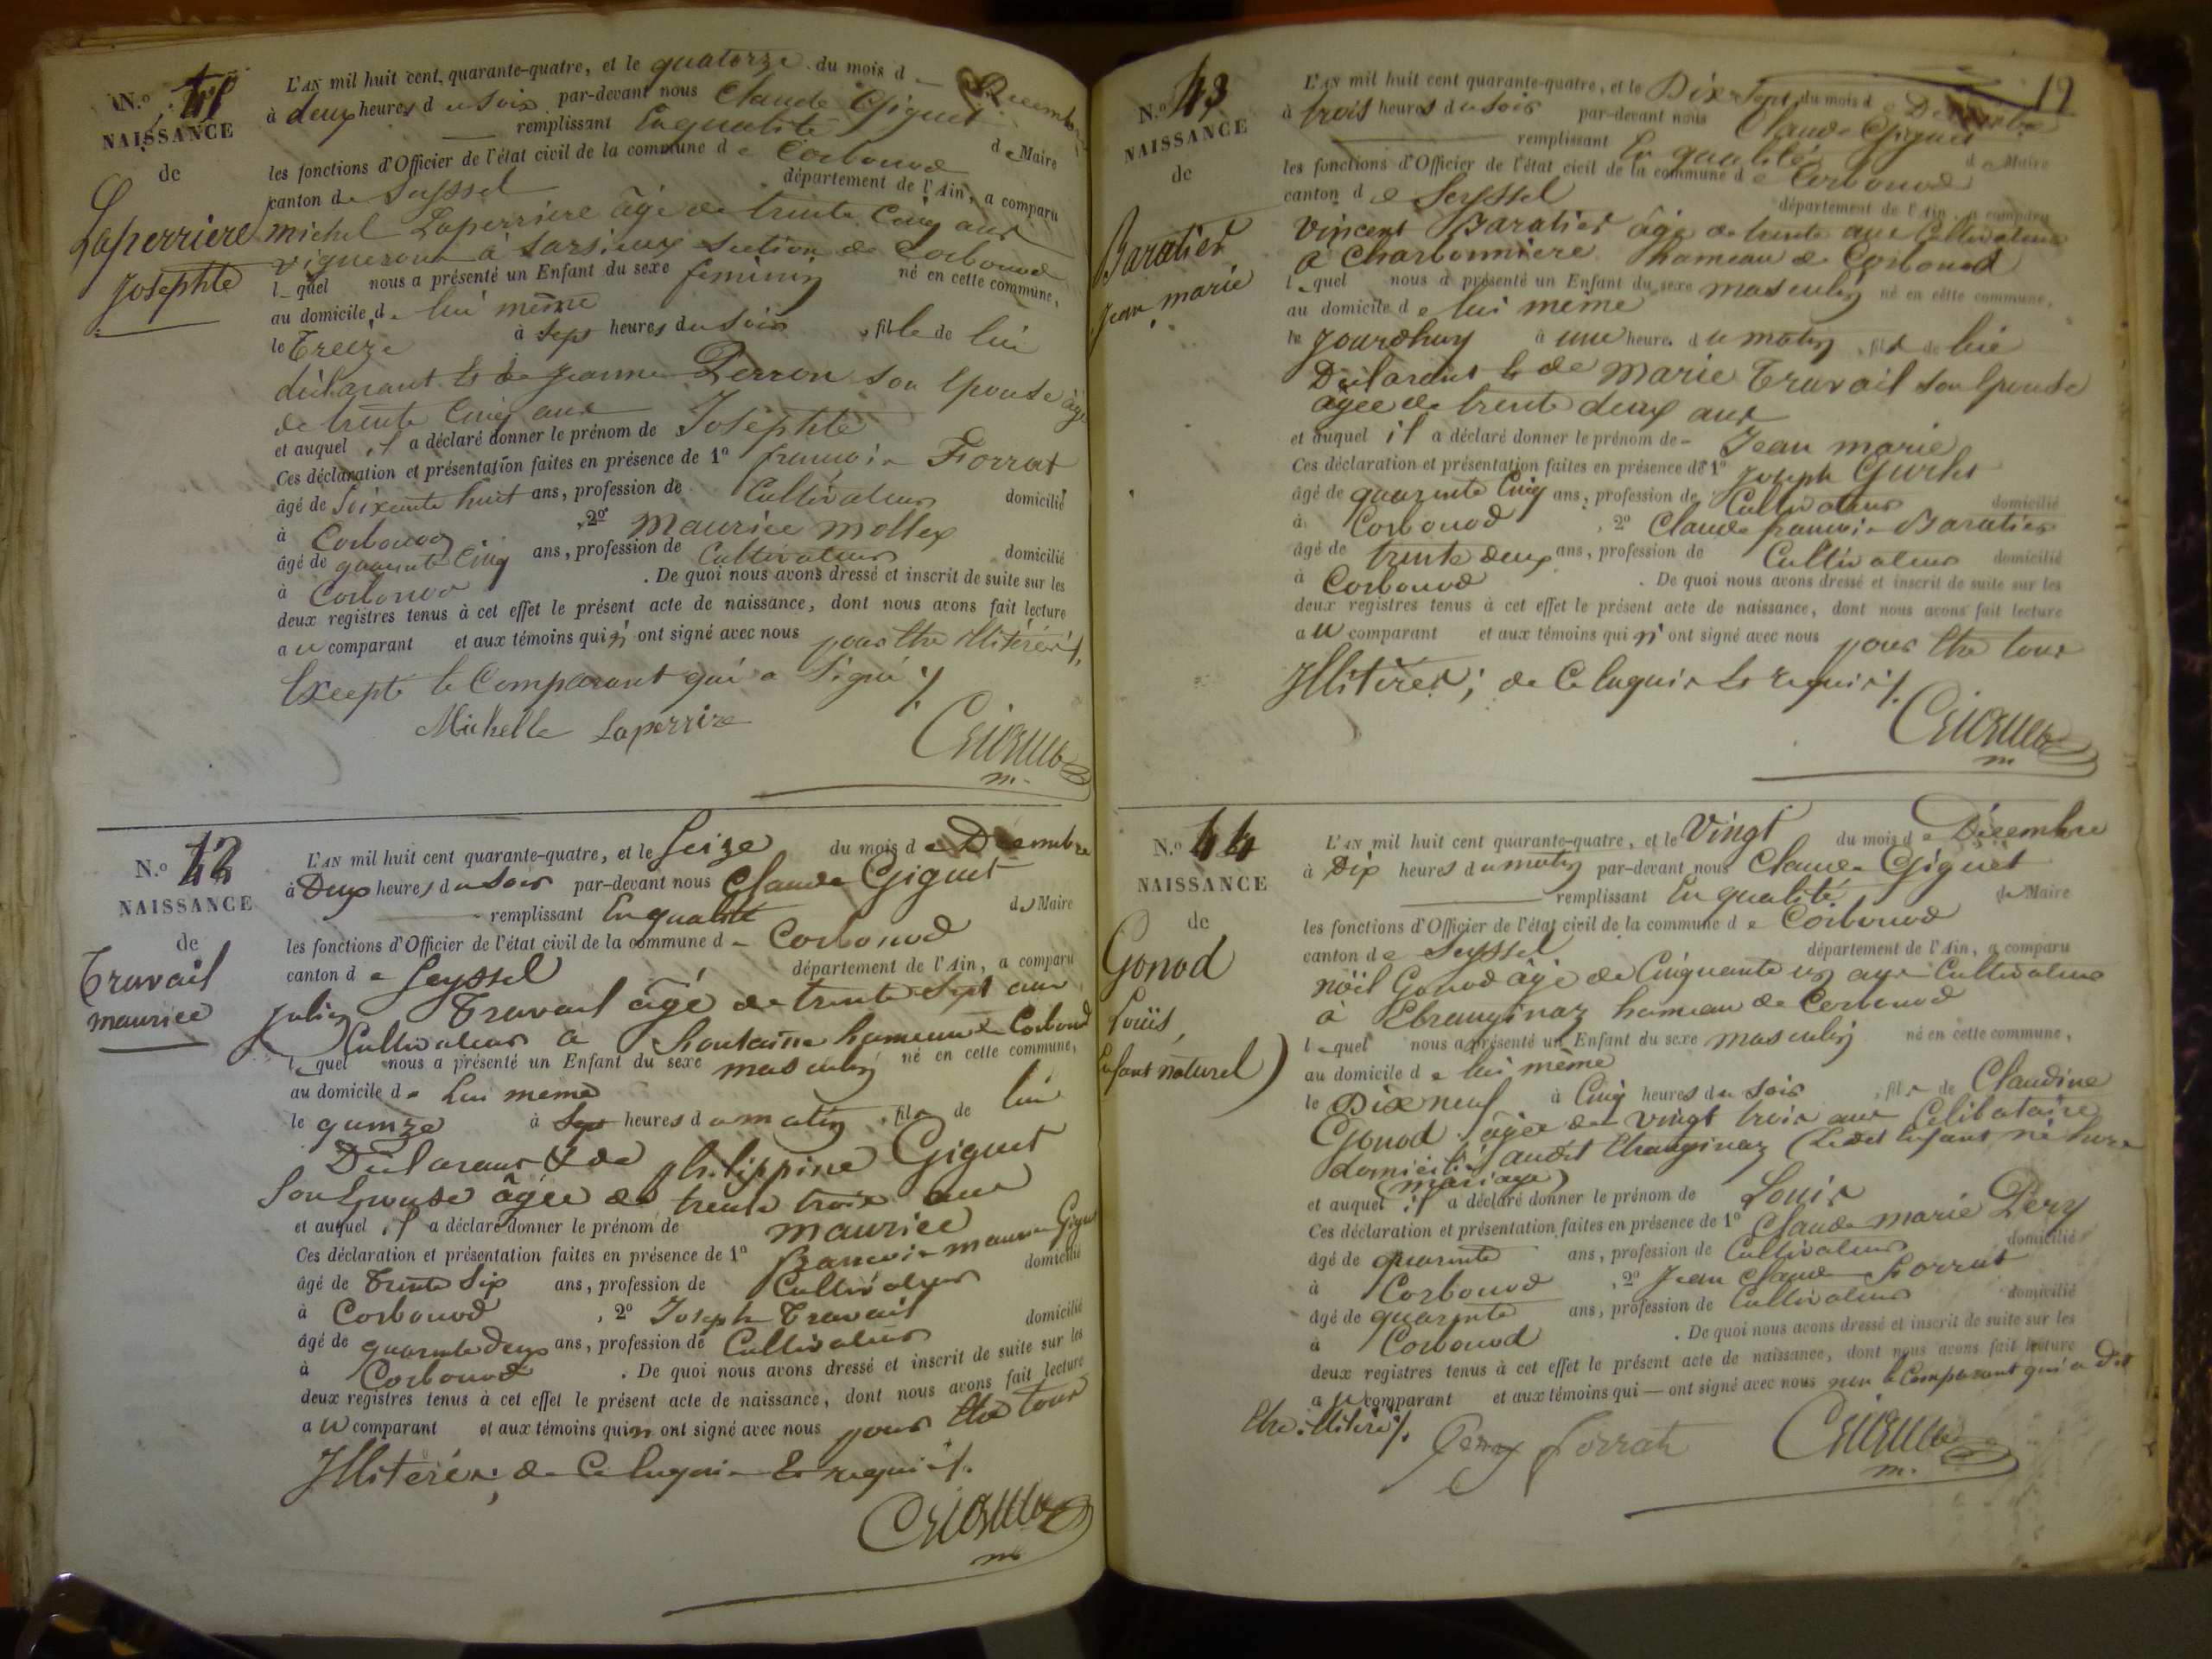 N.o 41
NAISSANCE
de
Laperriere
Josephte
L'AN mil huit cent quarante-quatre, et le quatorze du mois de Décembre
à deux heures du soir par-devant nous Claude Giguet
remplissant En qualité de Maire
les fonctions d'Officier de l'état civil de la commune de Corbonod
canton de Seyssel département de l'Ain, a comparu
michel Laperriere âgé de trente Cinq ans
vigneron à Sarsieux Section de Corbonod
lequel nous a présenté un Enfant du sexe feminin né en cette commune,
au domicile de lui même
le Treize à sept heures du soir, fille de lui
déclarant & de jeanne Perron son Epouse âgée
de trente Cinq ans
et auquel il a déclaré donner le prénom de Josephte
Ces déclaration et présentation faites en présence de 1o françois Forrat
âgé de Soixante huit ans, profession de Cultivateur domicilié
à Corbonod, 2o Maurice Mollex
âgé de quarante Cinq ans, profession de Cultivateur domicilié
à Corbonod. De quoi nous avons dressé et inscrit de suite sur les
deux registres tenus à cet effet le présent acte de naissance, dont nous avons fait lecture
au comparant et aux témoins qui n'ont signé avec nous pour Etre illitérés,
Excepté le Comparant qui a Signé ./.
Michelle Laperrire
Giguet
m.
N.o 42
NAISSANCE
de
Travail
maurice
L'AN mil huit cent quarante-quatre, et le Seize du mois de Décembre
à Deux heures du soir par-devant nous Claude Giguet
remplissant En qualité de Maire
les fonctions d'Officier de l'état civil de la commune de Corbonod
canton de Seyssel département de l'Ain, a comparu
julien Travail âgé de trente Sept ans
Cultivateur à fontaine hameau de Corbonod
lequel nous a présenté un Enfant du sexe masculin né en cette commune,
au domicile de Lui même
le quinze à Sept heures du matin, fils de lui
Déclarant & de philippine Giguet
Son Epouse âgée de trente trois ans
et auquel il a déclaré donner le prénom de maurice
Ces déclaration et présentation faites en présence de 1o francois maurice Giguet
âgé de Trente Six ans, profession de Cultivateur domicilié
à Corbonod, 2o Joseph Travail
âgé de quarante Deux ans, profession de Cultivateur domicilié
à Corbonod. De quoi nous avons dressé et inscrit de suite sur les
deux registres tenus à cet effet le présent acte de naissance, dont nous avons fait lecture
au comparant et aux témoins qui n'ont signé avec nous pour Etre tous
Illiterés; de Ce Enquis & requis ./.
Giguet
m.
12
N.o 43
NAISSANCE
de
Baratier
Jean marie
L'AN mil huit cent quarante-quatre, et le Dix Sept du mois de Décembre
à trois heures du soir par-devant nous Claude Giguet
remplissant En qualité de Maire
les fonctions d'Officier de l'état civil de la commune de Corbonod
canton de Seyssel département de l'Ain, a comparu
Vincent Baratier âgé de trente ans Cultivateur
à Charbonniere hameau de Corbonod
lequel nous a présenté un Enfant du sexe masculin né en cette commune,
au domicile de lui même
le jourdhuy à une heure du matin, fils de lui
Déclarant & de Marie Travail son Epouse
âgée de trente deux ans
et auquel il a déclaré donner le prénom de Jean marie
Ces déclaration et présentation faites en présence de 1o Joseph
âgé de quarante Cinq ans, profession de Cultivateur domicilié
à Corbonod, 2o Claude francois Baratier
âgé de trente deux ans, profession de Cultivateur domicilié
à Corbonod. De quoi nous avons dressé et inscrit de suite sur les
deux registres tenus à cet effet le présent acte de naissance, dont nous avons fait lecture
au comparant et aux témoins qui n'ont signé avec nous pour Etre tous
Illiterés; de Ce Enquis & requis ./.
Giguet
m.
N.o 44
NAISSANCE
de
Gonod
Louïs
Enfant naturel
L'AN mil huit cent quarante-quatre, et le Vingt du mois de Décembre
à Dix heures du matin par-devant nous Claude Giguet
remplissant En qualité de Maire
les fonctions d'Officier de l'état civil de la commune de Corbonod
canton de Seyssel département de l'Ain, a comparu
noël Gonod âgé de Cinquante un ans Cultivateur
à Etranginaz hameau de Corbonod
lequel nous a présenté un Enfant du sexe masculin né en cette commune,
au domicile de lui même
le Dix neuf à Cinq heures du soir, fils de Claudine
Gonod âgée de vingt trois ans Célibataire
domiciliée audit Etranginaz (Ledit Enfant né hors
mariage)
et auquel il a déclaré donner le prénom de Louis
Ces déclaration et présentation faites en présence de 1o Claude marie Pery
âgé de quarante ans, profession de Cultivateur domicilié
à Corbonod, 2o Jean Claude Forrat
âgé de quarante ans, profession de Cultivateur domicilié
à Corbonod. De quoi nous avons dressé et inscrit de suite sur les
deux registres tenus à cet effet le présent acte de naissance, dont nous avons fait lecture
au comparant et aux témoins qui — ont signé avec nous non le Comparant qui a Dit
Etre illitéré ./. Pery forrat Giguet
m.